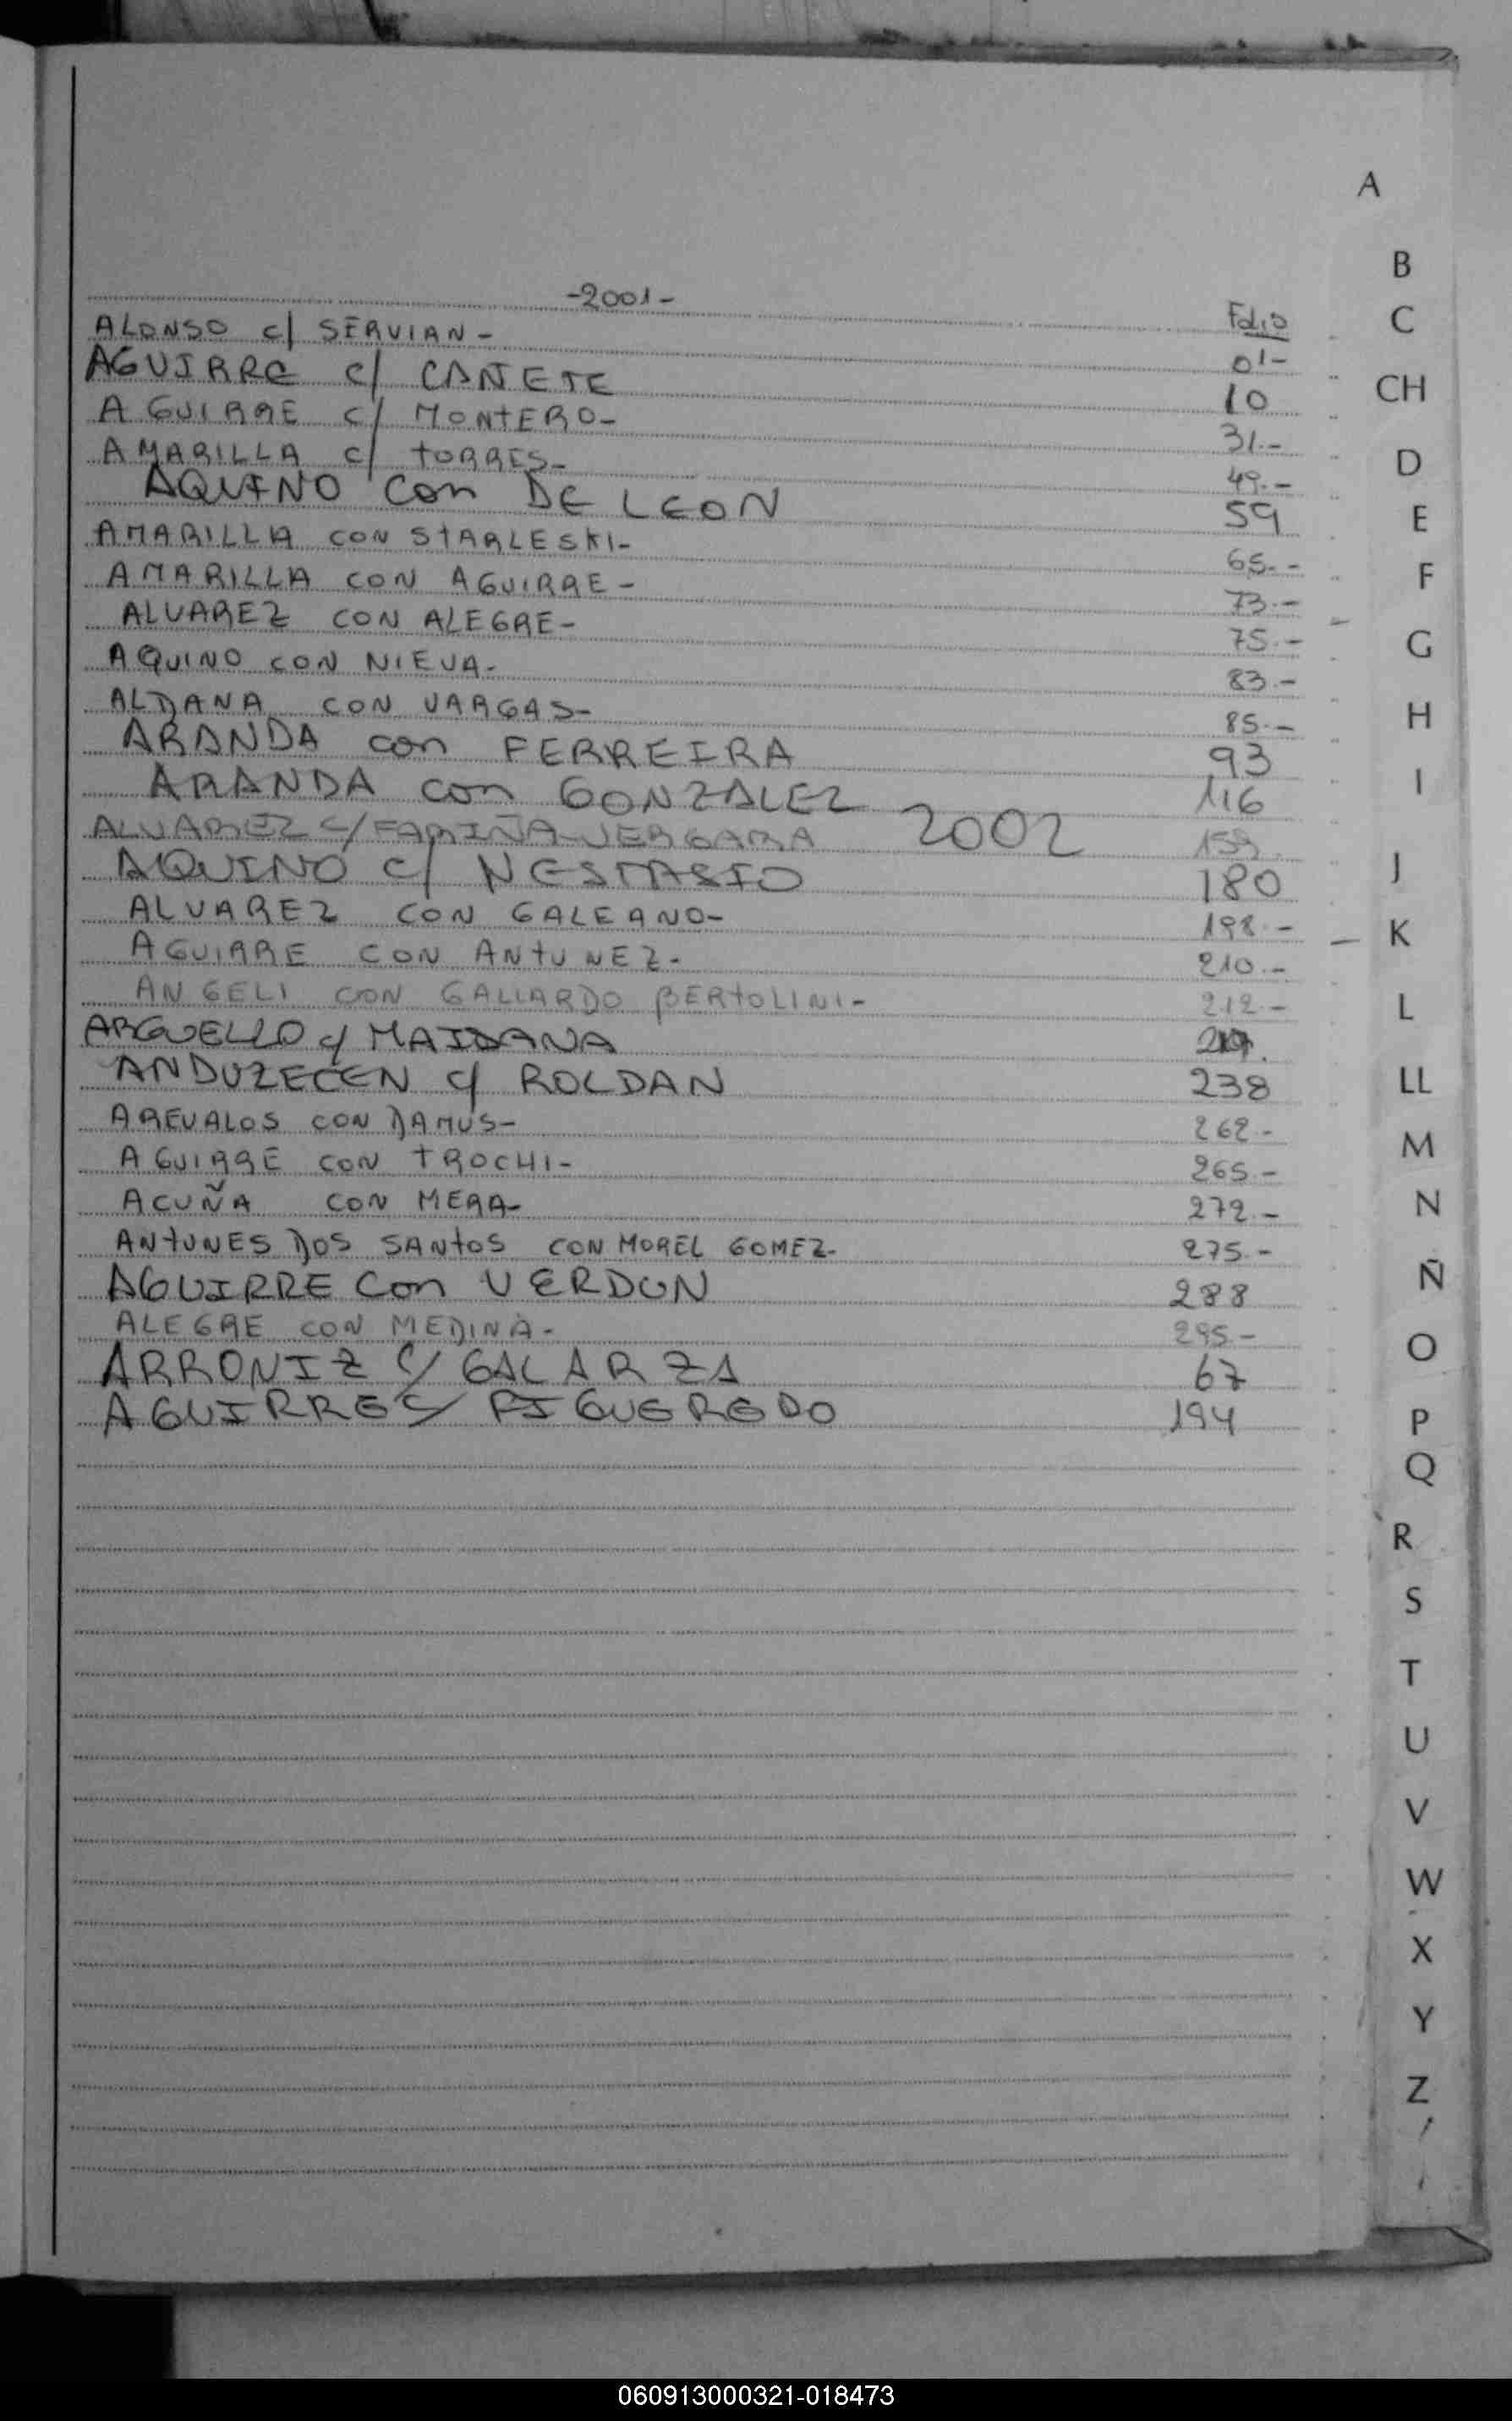 -2001-
Folio
ALONSO c/ SERVIAN - 01-
AGUIRRE c/ CANETE 10
AGUIRRE c/ MONTERO- 31.-
AMARILLA c/ TORRES- 49.-
AQUINO con DE LEON 59
AMARILLA CON STARLESKI- 65.-
AMARILLA CON AGUIRRE - 73.-
ALVAREZ CON ALEGRE- 75.-
AQUINO CON NIEVA- 83.-
ALDANA CON VARGAS- 85.-
ARANDA con FERREIRA 93
ARANDA con GONZALEZ 116
ALVAREZ c/ FARIÑA VERGARA 2002 159
AQUINO c/ 180
ALVAREZ CON GALEANO- 198.-
AGUIRRE CON ANTUNEZ- 210.-
ANGELI CON GALLARDO BERTOLINI- 212.-
ARGUELLO c/ MAIDANA
ANDUZECEN c/ ROLDAN 238
AREVALOS CON DAMUS- 262-
AGUIRRE CON TROCHI- 265.-
ACUÑA CON MERA- 272.-
ANTUNES DOS SANTOS CON MOREL GOMEZ- 275.-
AGUIRRE Con VERDUN 288
ALEGRE CON MEDINA- 295-
ARRONIZ c/ GALARZA 67
AGUIRRE c/ FIGUEREDO 194
A
B
C
CH
D
E
F
G
H
I
J
K
L
LL
M
N
Ñ
O
P
Q
R
S
T
U
V
W
X
Y
Z
060913000321-018473